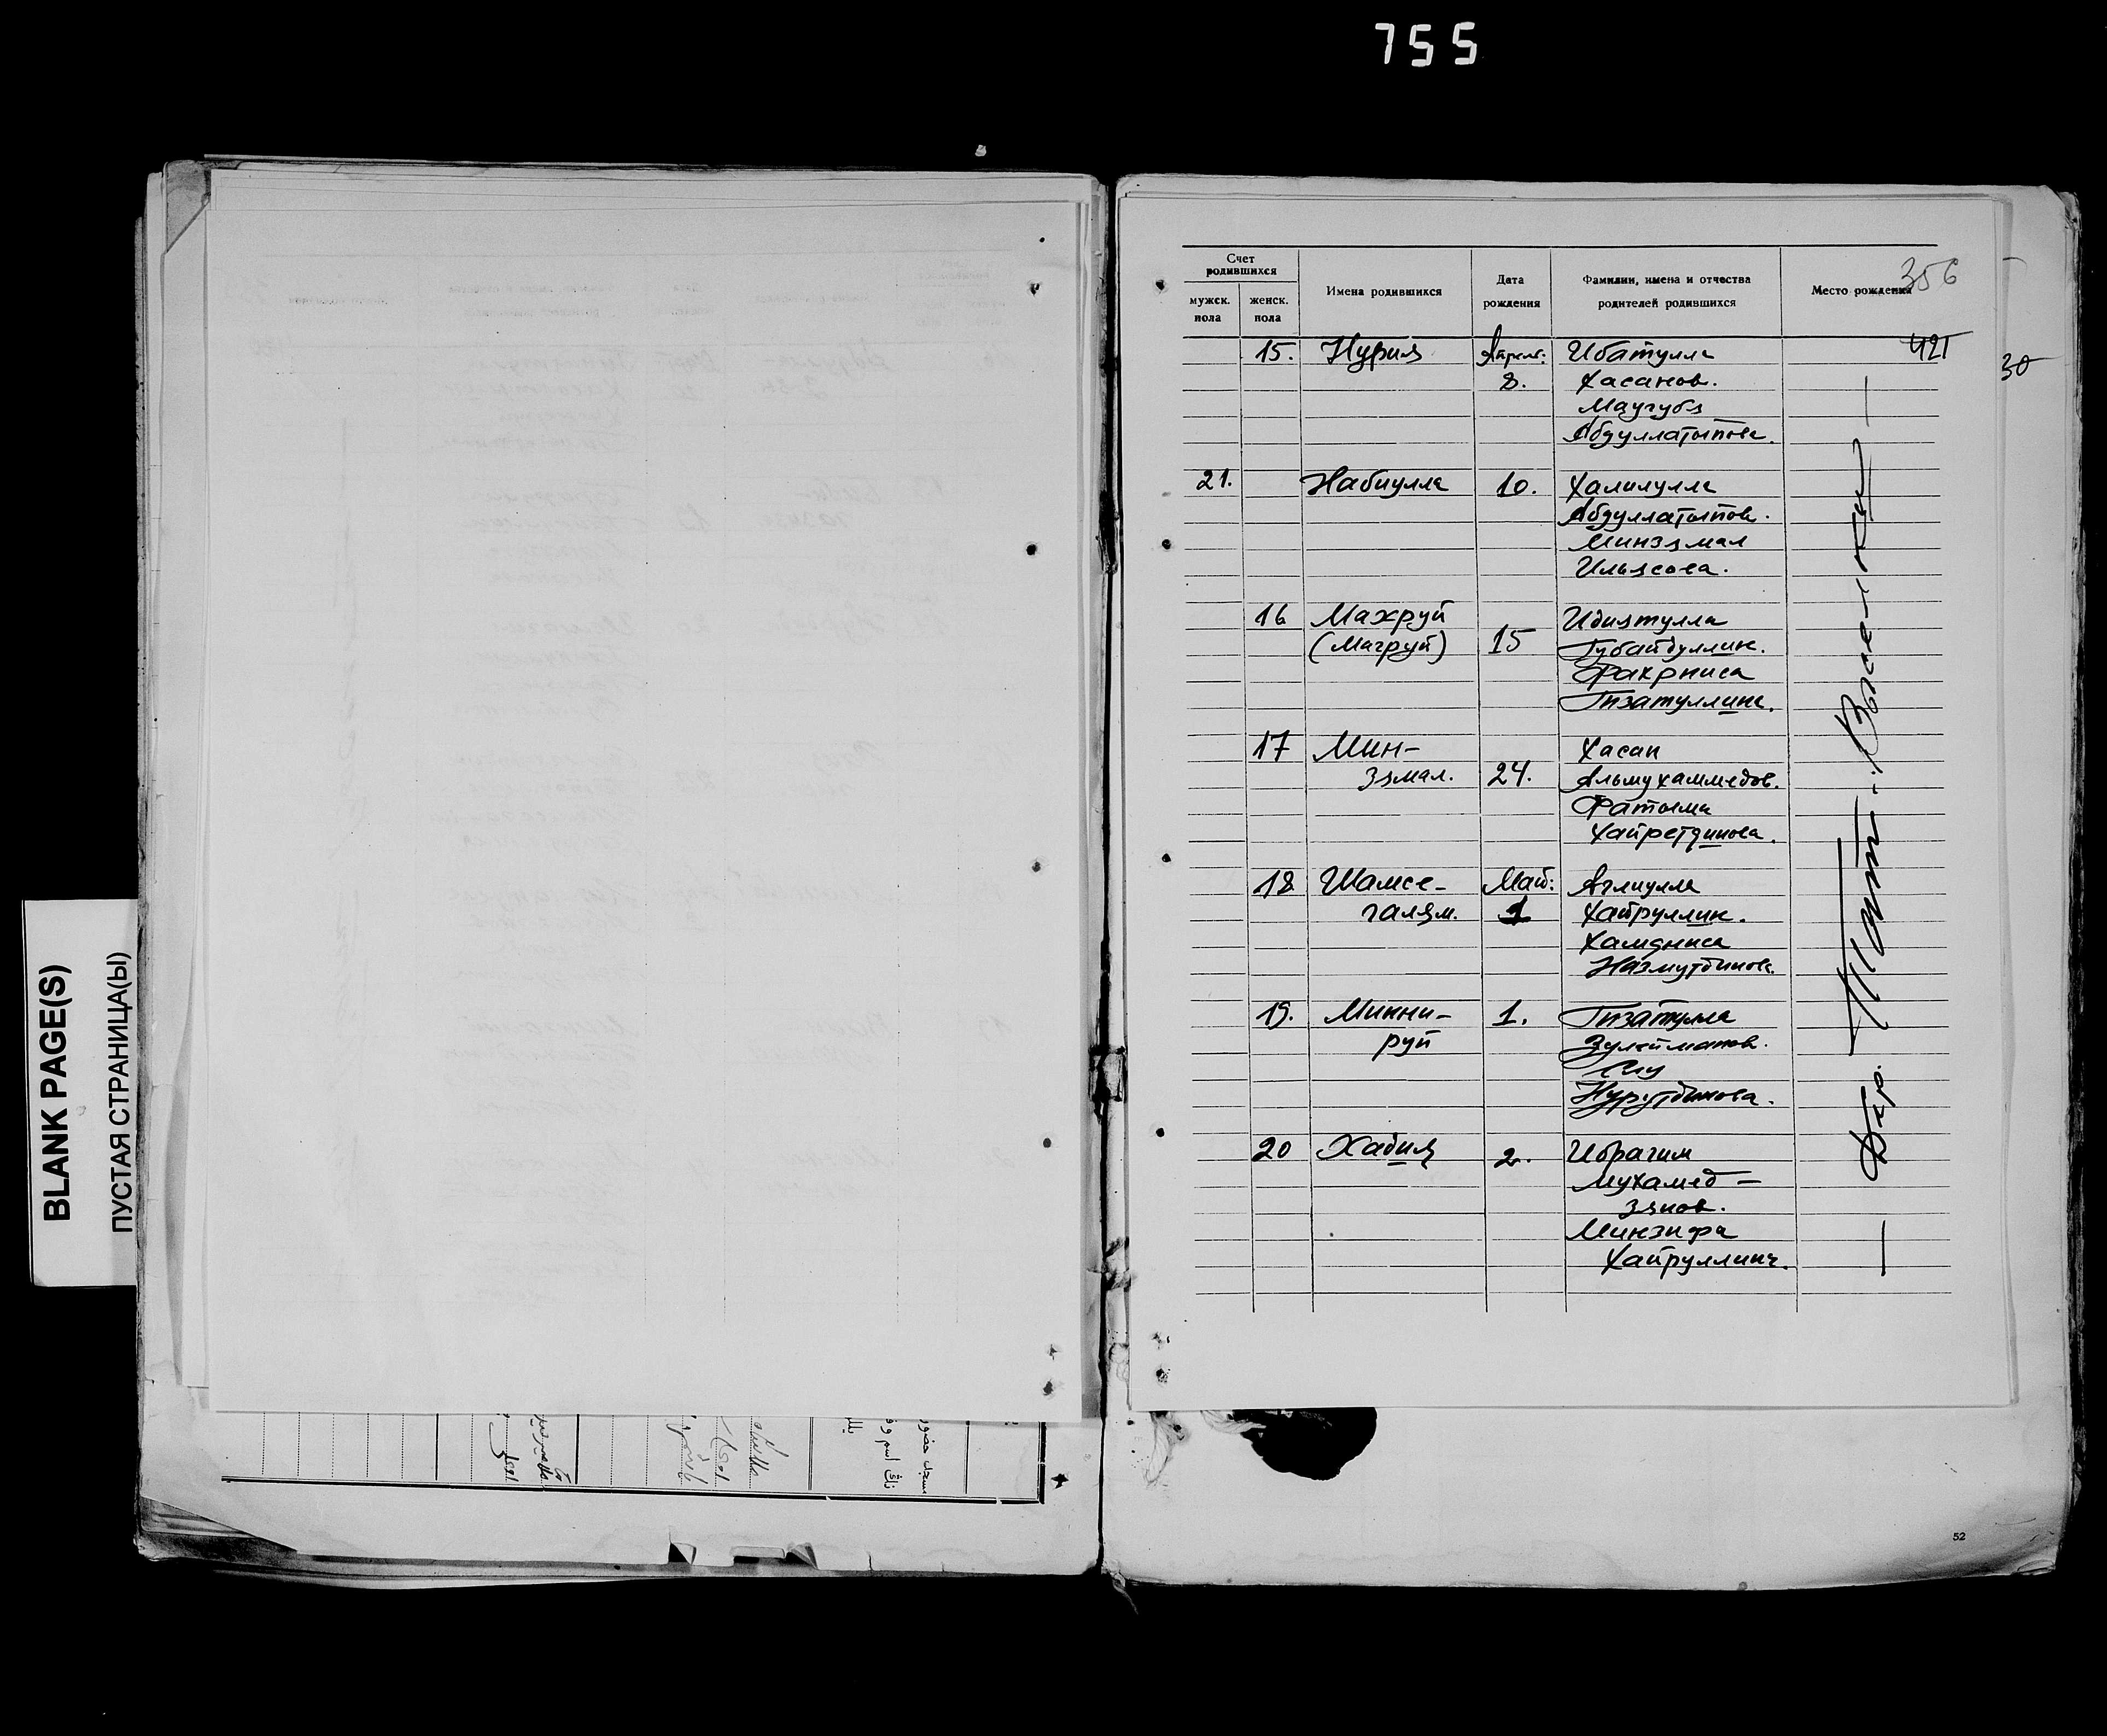 755
BLANK PAGE(S)
ПУСТАЯ СТРАНИЦА(Ы)
356
Счет родившихся
мужск. пола
женск. пола
Имена родившихся
Дата рождения
Фамилии, имена и отчества родителей родившихся
Место рождения
421
30
15. Нурия Апрель: Ибатулла
8. Хасанов.
Маугубя
Абдуллатыпова.
21. Набиулла 10. Халилулла
Абдуллатыпов.
Минзямал
Ильясова.
16 Махруй Идиятулла
(Магруй) 15 Губайдуллин.
Фахрниса
Гизатуллина.
17 Мин- Хасан
зямал. 24. Альмухаммедов.
Фатыма
Хайретдинова.
18 Шамсе- Май: Аглиулла
галям. 1 Хайруллин.
Хамдниса
Назмутдинова.
19. Минни- 1. Гизатулла
руй Зулкйманов.
Слу
Нурутдинова.
20 Хадия 2. Ибрагим
Мухамед-
зянов.
Минзифа
Хайруллина.
— Дер. Тат. Выселки —
52